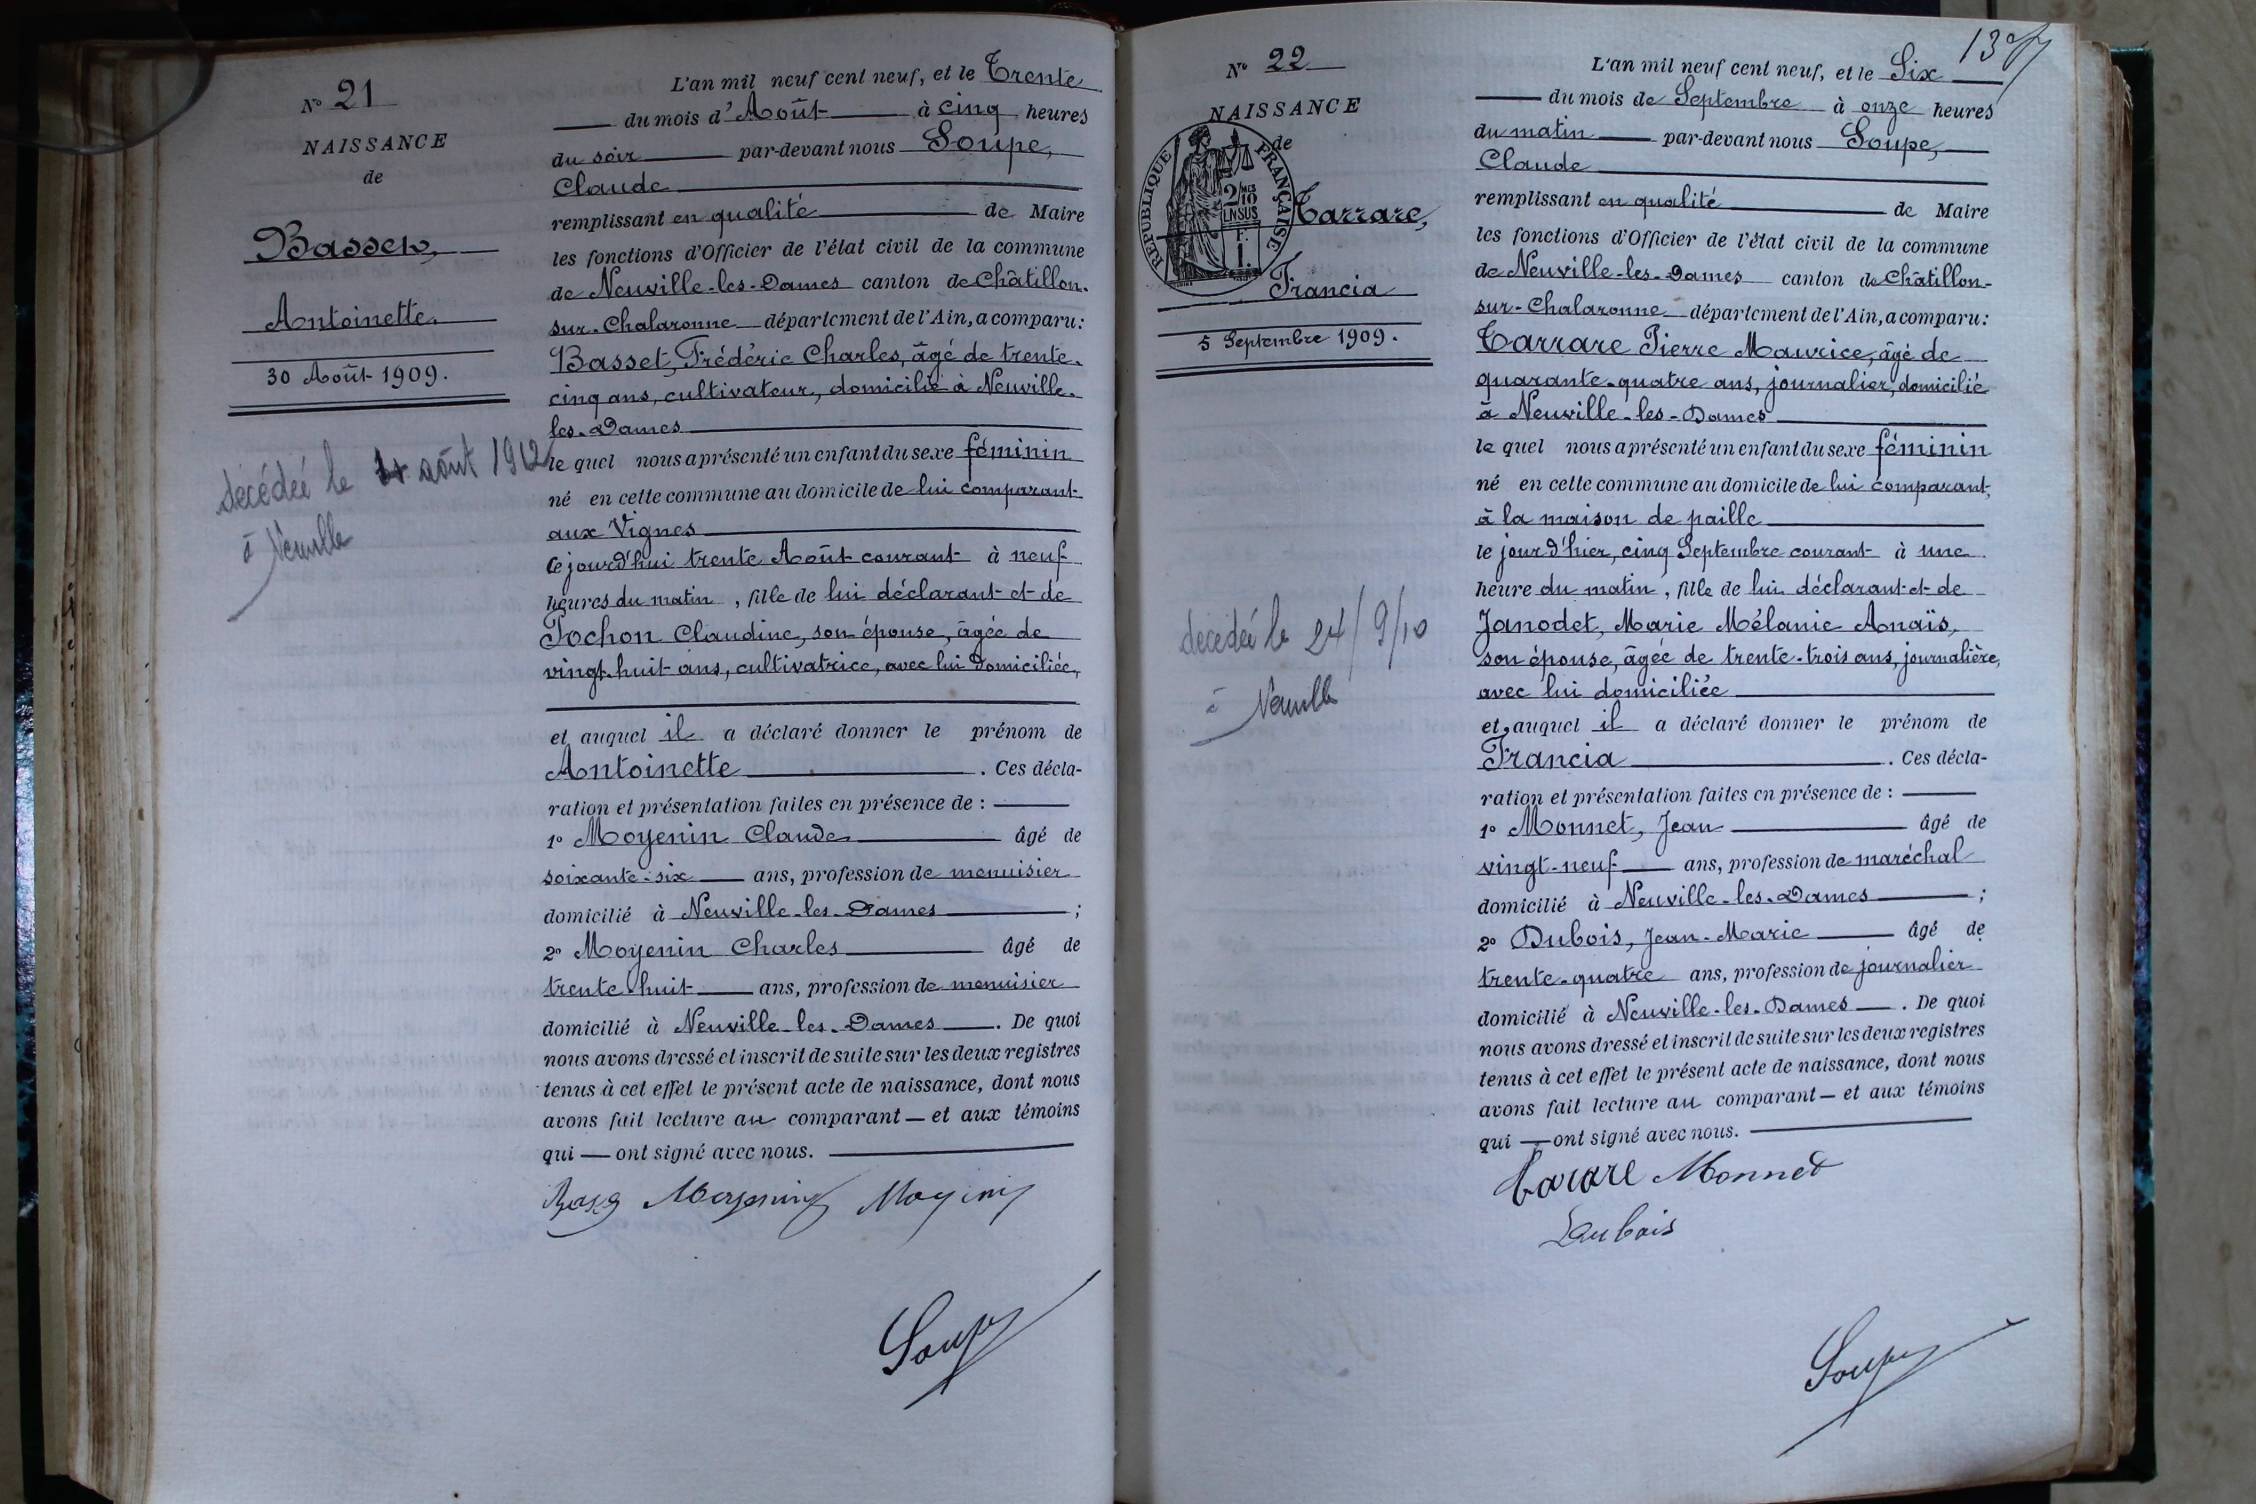 N° 21
NAISSANCE
de
Basset,
Antoinette.
30 Août 1909.
décédée le août 1912
à Neuville
L'an mil neuf cent neuf, et le Trente
du mois d'Août à cinq heures
du soir par-devant nous Soupe,
Claude
remplissant en qualité de Maire
les fonctions d'Officier de l'état civil de la commune
de Neuville-les-Dames canton de Châtillon-
sur-Chalaronne département de l'Ain, a comparu:
Basset, Frédéric Charles, âgé de trente-
cinq ans, cultivateur, domicilié à Neuville-
les-Dames
le quel nous a présenté un enfant du sexe féminin
né en cette commune au domicile de lui comparant
aux Vignes
cejourd'hui trente Août courant à neuf
heures du matin, fille de lui déclarant et de
Pochon Claudine, son épouse, âgée de
vingt-huit ans, cultivatrice, avec lui domiciliée,
et auquel il a déclaré donner le prénom de
Antoinette. Ces décla-
ration et présentation faites en présence de :
1° Moyenin Claude âgé de
soixante-six ans, profession de menuisier
domicilié à Neuville-les-Dames ;
2° Moyenin Charles âgé de
trente huit ans, profession de menuisier
domicilié à Neuville-les-Dames. De quoi
nous avons dressé et inscrit de suite sur les deux registres
tenus à cet effet le présent acte de naissance, dont nous
avons fait lecture au comparant — et aux témoins
qui — ont signé avec nous.
Moyenin
Soupe
N° 22
NAISSANCE
de
RÉPUBLIQUE FRANÇAISE
2/10
EN SUS
F.
1.
Tarrare,
Francia
5 Septembre 1909.
décédée le 24/9/10
à Neuville
L'an mil neuf cent neuf, et le Six
du mois de Septembre à onze heures
du matin par-devant nous Soupe,
Claude
remplissant en qualité de Maire
les fonctions d'Officier de l'état civil de la commune
de Neuville-les-Dames canton de Châtillon-
sur-Chalaronne département de l'Ain, a comparu:
Tarrare Pierre Maurice, âgé de
quarante-quatre ans, journalier, domicilié
à Neuville-les-Dames
le quel nous a présenté un enfant du sexe féminin
né en cette commune au domicile de lui comparant,
à la maison de paille
le jour d'hier, cinq Septembre courant à une
heure du matin, fille de lui déclarant et de
Janodet, Marie Mélanie Anaïs,
son épouse, âgée de trente-trois ans, journalière,
avec lui domiciliée
et auquel il a déclaré donner le prénom de
Francia. Ces décla-
ration et présentation faites en présence de :
1° Monnet, Jean âgé de
vingt-neuf ans, profession de maréchal
domicilié à Neuville-les-Dames ;
2° Dubois, Jean-Marie âgé de
trente-quatre ans, profession de journalier
domicilié à Neuville-les-Dames. De quoi
nous avons dressé et inscrit de suite sur les deux registres
tenus à cet effet le présent acte de naissance, dont nous
avons fait lecture au comparant — et aux témoins
qui — ont signé avec nous.
Tarare Monnet
Dubois
Soupe